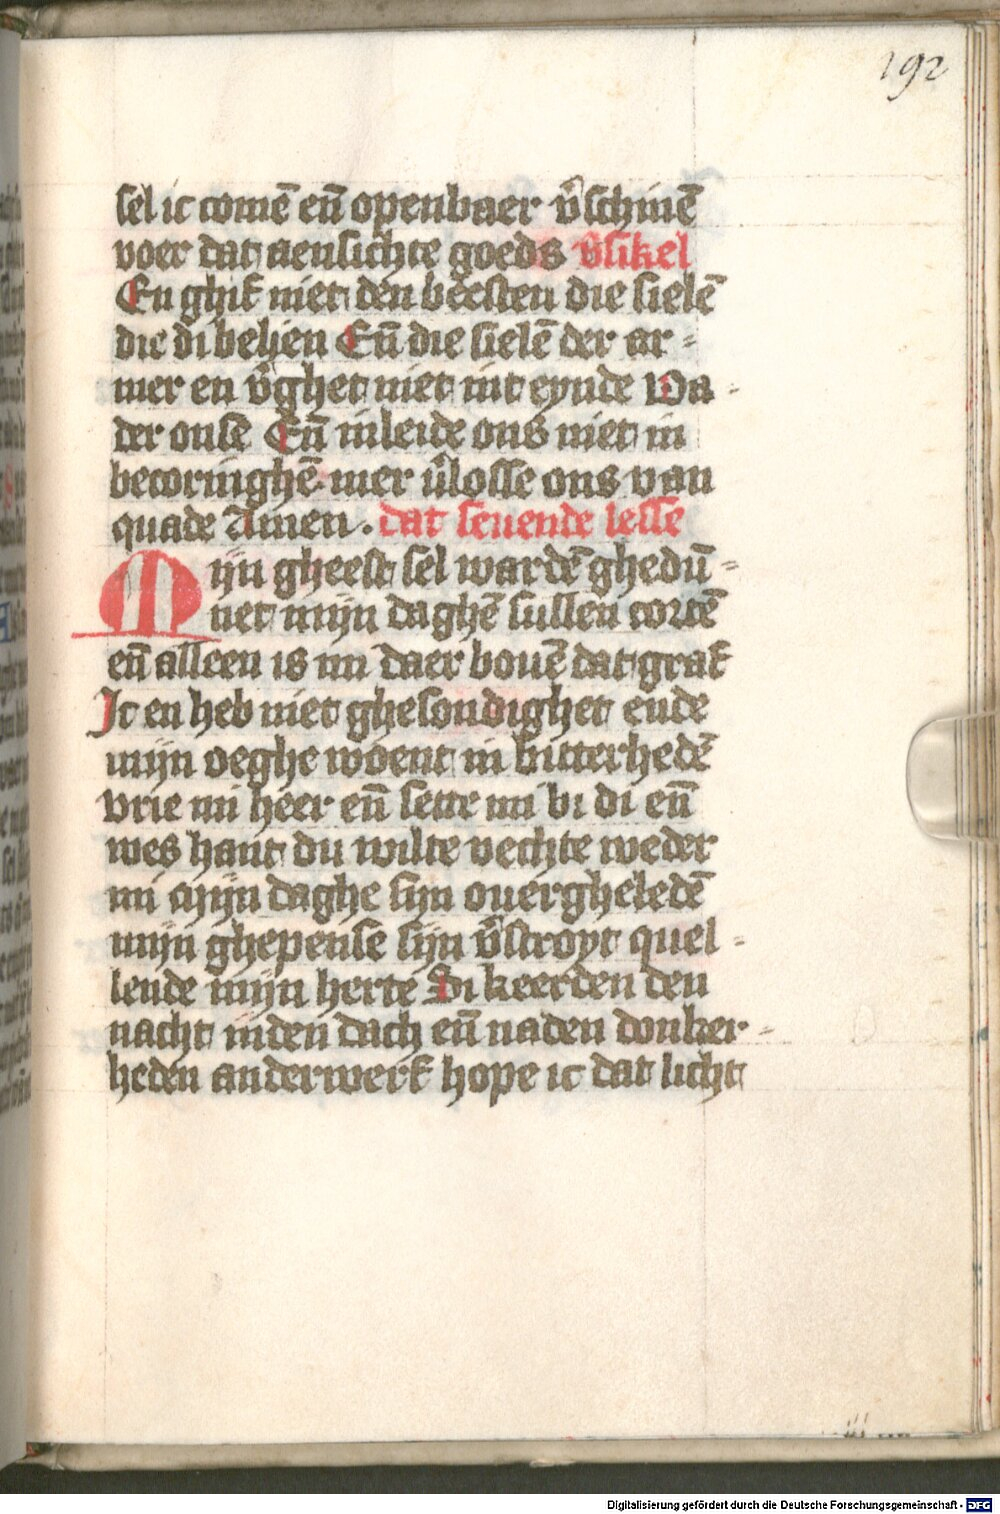 192
sel ic comē en̄ openbaer v̄schinē
voer dat aensichte goeds v̄sikel
En ghif niet den beesten die sielē
die di belien En̄ die sielē der ar-
mer en v̄ghet niet int eynde Va-
der onse En̄ inleide ons niet in
becoringhē. mer v̄losse ons van
quade Amen. dat seuende lesse
Mijn gheest sel wardē ghedū-
net mijn daghē sullen cortē
en̄ alleen is mi daer bouē dat graf
Ic en heb niet ghesondighet ende
mijn oeghe woent in bitterhedē
vrie mi heer en̄ sette mi bi di en̄
wes hant du wilte vechte weder
mi mijn daghe sijn ouergheledē
mijn ghepense sijn v̄stroyt quel-
lende mijn herte Si keerden den
nacht inden dach en̄ naden donker-
heden anderwerf hope ic dat licht
Digitalisierung gefördert durch die Deutsche Forschungsgemeinschaft - DFG